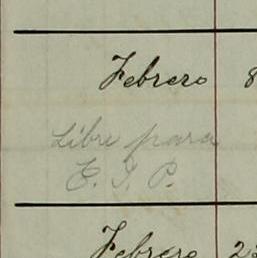 Febrero 8
Libre para
E. I. P.
Febrero 23